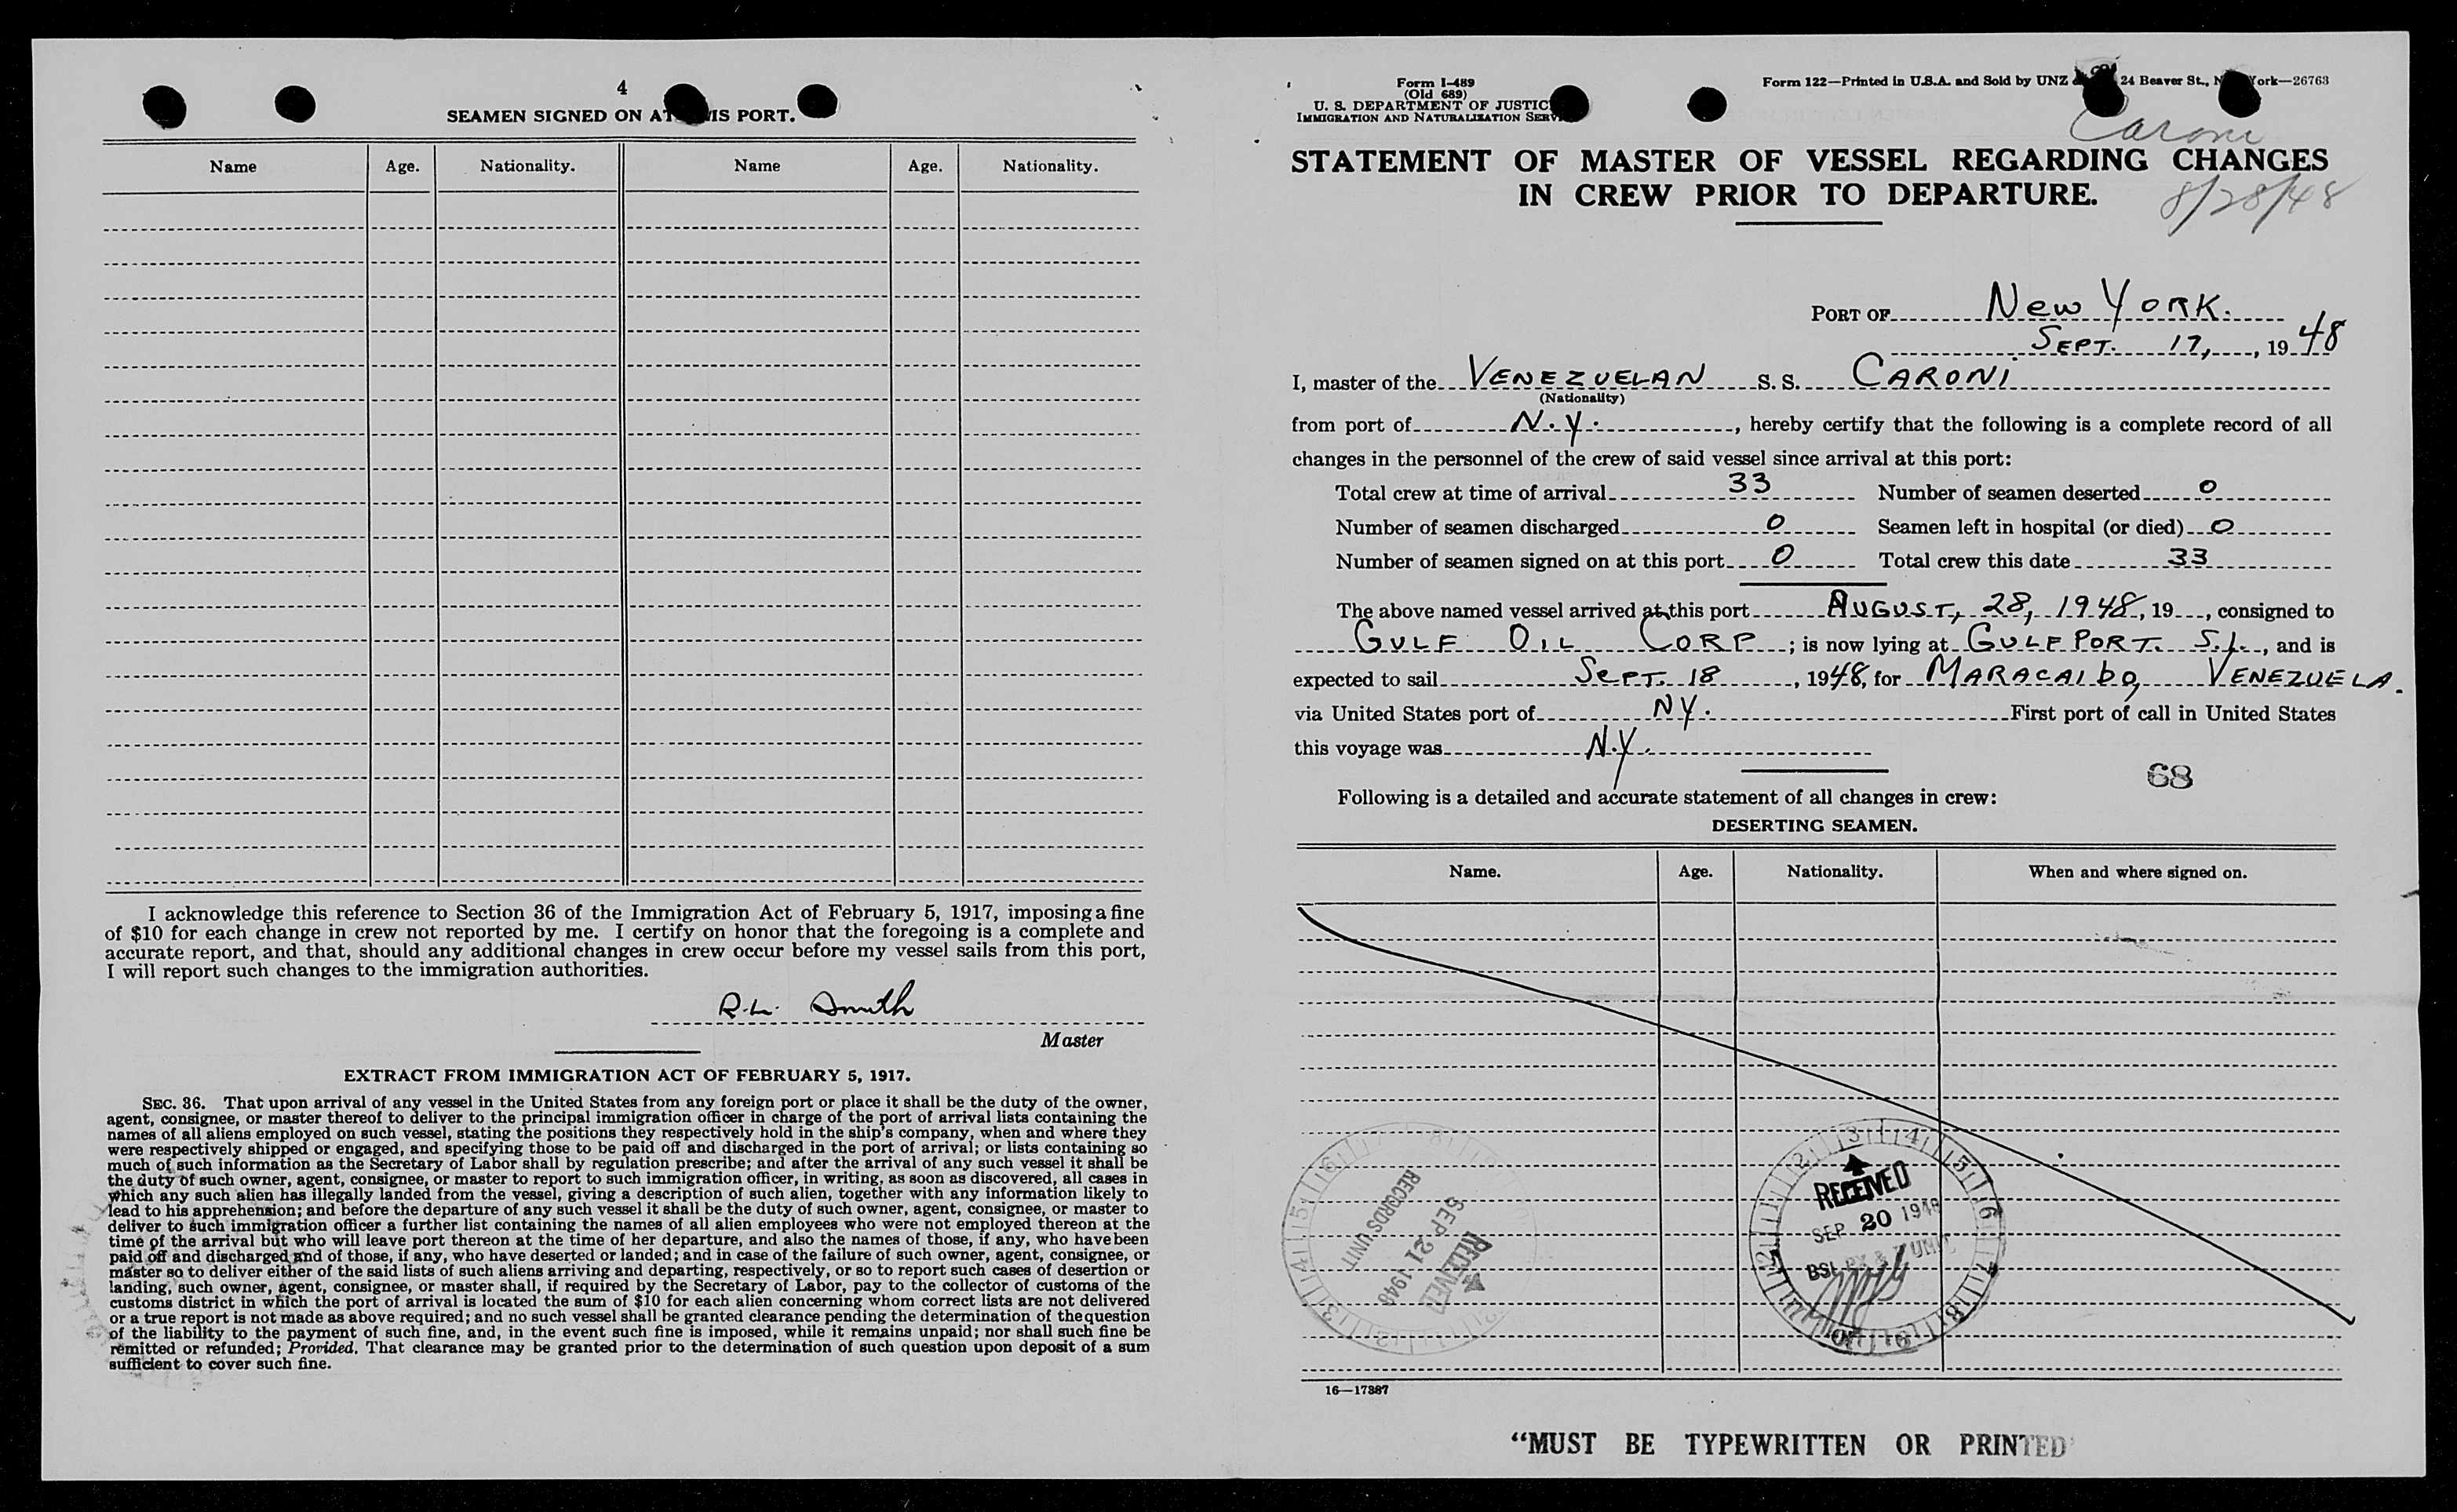 4
SEAMEN SIGNED ON AT THIS PORT.
Name Age. Nationality. Name Age. Nationality.
I acknowledge this reference to Section 36 of the Immigration Act of February 5, 1917, imposing a fine
of $10 for each change in crew not reported by me. I certify on honor that the foregoing is a complete and
accurate report, and that, should any additional changes in crew occur before my vessel sails from this port,
I will report such changes to the immigration authorities.
R.L. Smith
Master
EXTRACT FROM IMMIGRATION ACT OF FEBRUARY 5, 1917.
SEC. 36. That upon arrival of any vessel in the United States from any foreign port or place it shall be the duty of the owner,
agent, consignee, or master thereof to deliver to the principal immigration officer in charge of the port of arrival lists containing the
names of all aliens employed on such vessel, stating the positions they respectively hold in the ship's company, when and where they
were respectively shipped or engaged, and specifying those to be paid off and discharged in the port of arrival; or lists containing so
much of such information as the Secretary of Labor shall by regulation prescribe; and after the arrival of any such vessel it shall be
the duty of such owner, agent, consignee, or master to report to such immigration officer, in writing, as soon as discovered, all cases in
which any such alien has illegally landed from the vessel, giving a description of such alien, together with any information likely to
lead to his apprehension; and before the departure of any such vessel it shall be the duty of such owner, agent, consignee, or master to
deliver to such immigration officer a further list containing the names of all alien employees who were not employed thereon at the
time of the arrival but who will leave port thereon at the time of her departure, and also the names of those, if any, who have been
paid off and discharged and of those, if any, who have deserted or landed; and in case of the failure of such owner, agent, consignee, or
master so to deliver either of the said lists of such aliens arriving and departing, respectively, or so to report such cases of desertion or
landing, such owner, agent, consignee, or master shall, if required by the Secretary of Labor, pay to the collector of customs of the
customs district in which the port of arrival is located the sum of $10 for each alien concerning whom correct lists are not delivered
or a true report is not made as above required; and no such vessel shall be granted clearance pending the determination of the question
of the liability to the payment of such fine, and, in the event such fine is imposed, while it remains unpaid; nor shall such fine be
remitted or refunded; Provided, That clearance may be granted prior to the determination of such question upon deposit of a sum
sufficient to cover such fine.
Form I-489
(Old 689)
U. S. DEPARTMENT OF JUSTICE
IMMIGRATION AND NATURALIZATION SERVICE
Form 122—Printed in U.S.A. and Sold by UNZ & 24 Beaver St., New York—26763
Caroni
STATEMENT OF MASTER OF VESSEL REGARDING CHANGES
IN CREW PRIOR TO DEPARTURE.
8/28/48
PORT OF New York.
SEPT. 17, , 1948
I, master of the VENEZUELAN S. S. CARONI
(Nationality)
from port of N.Y. , hereby certify that the following is a complete record of all
changes in the personnel of the crew of said vessel since arrival at this port:
Total crew at time of arrival 33 Number of seamen deserted 0
Number of seamen discharged 0 Seamen left in hospital (or died) 0
Number of seamen signed on at this port 0 Total crew this date 33
The above named vessel arrived at this port AUGUST, 28, 1948, 19 , consigned to
GULF OIL CORP ; is now lying at GULF PORT. S.I. , and is
expected to sail SEPT. 18 , 1948, for MARACAIBO, VENEZUELA.
via United States port of NY. First port of call in United States
this voyage was N.Y.
68
Following is a detailed and accurate statement of all changes in crew:
DESERTING SEAMEN.
Name. Age. Nationality. When and where signed on.
RECEIVED
SEP 21 1948
RECORDS UNIT
RECEIVED
SEP 20 1948
16—17387
"MUST BE TYPEWRITTEN OR PRINTED"